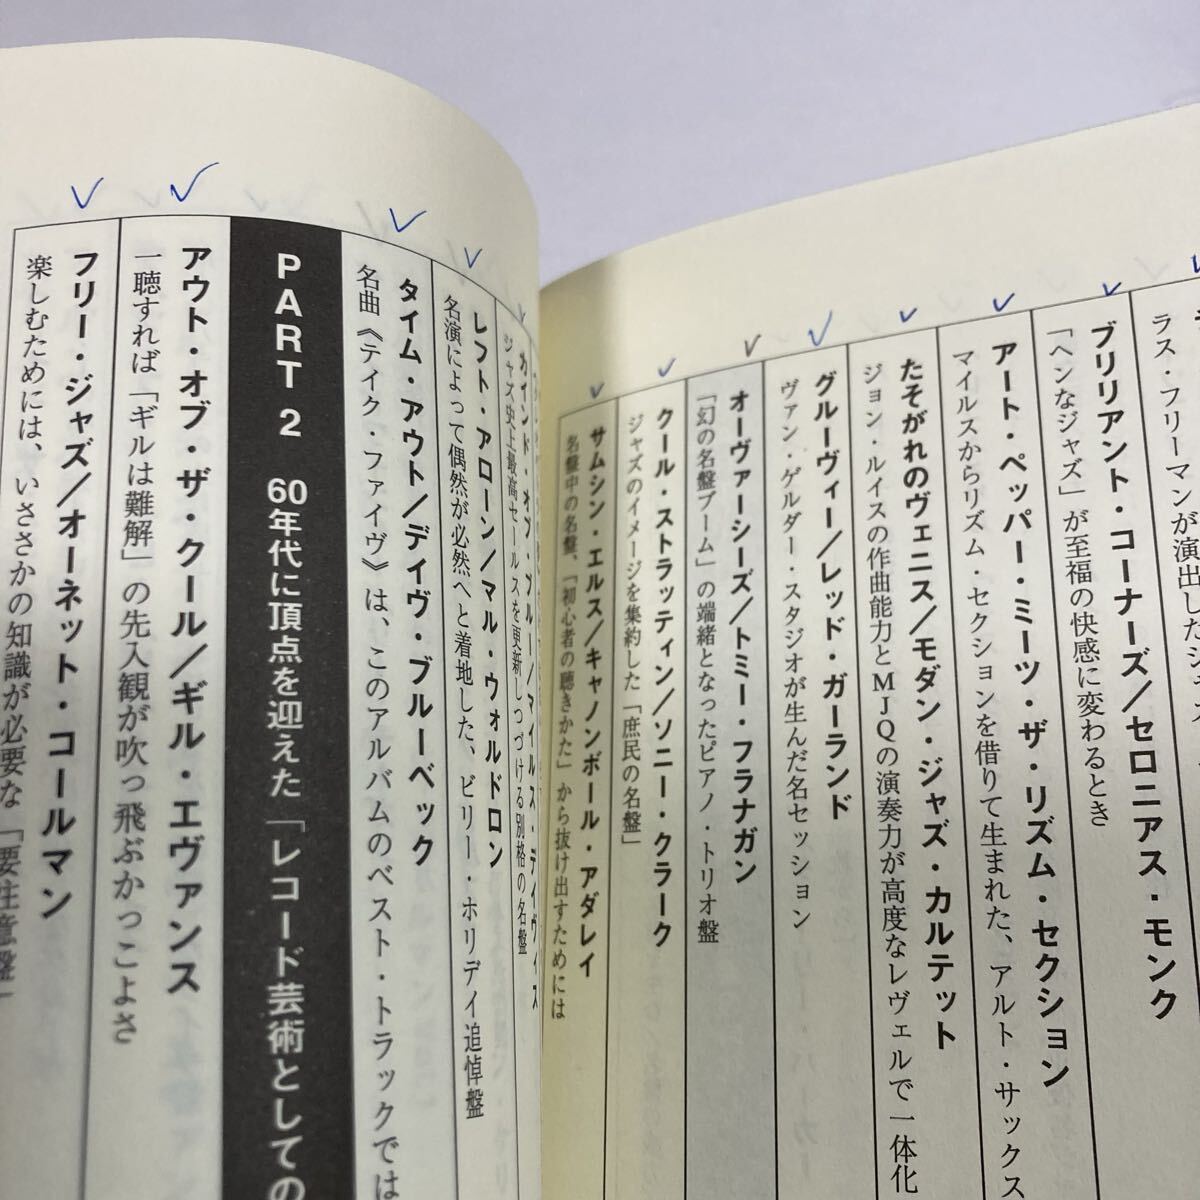 ラス・フリーマンが演出した
ブリリアント・コーナーズ／セロニアス・モンク
「ヘンなジャズ」が至福の快感に変わるとき
アート・ペッパー・ミーツ・ザ・リズム・セクション
マイルスからリズム・セクションを借りて生まれた、アルト・サックス
たそがれのヴェニス／モダン・ジャズ・カルテット
ジョン・ルイスの作曲能力とMJQの演奏力が高度なレヴェルで一体化
グルーヴィー／レッド・ガーランド
ヴァン・ゲルダー・スタジオが生んだ名セッション
オーヴァーシーズ／トミー・フラナガン
「幻の名盤ブーム」の端緒となったピアノ・トリオ盤
クール・ストラッティン／ソニー・クラーク
ジャズのイメージを集約した「庶民の名盤」
サムシン・エルス／キャノンボール・アダレイ
名盤中の名盤、「初心者の聴きかた」から抜け出すためには
カインド・オブ・ブルー／マイルス・デイヴィス
ジャズ史上最高セールスを更新しつづける別格の名盤
レフト・アローン／マル・ウォルドロン
名演によって偶然が必然へと着地した、ビリー・ホリデイ追悼盤
タイム・アウト／デイヴ・ブルーベック
名曲《テイク・ファイヴ》は、このアルバムのベスト・トラックでは
PART 2 60年代に頂点を迎えた「レコード芸術としての
アウト・オブ・ザ・クール／ギル・エヴァンス
一聴すれば「ギルは難解」の先入観が吹っ飛ぶかっこよさ
フリー・ジャズ／オーネット・コールマン
楽しむためには、いささかの知識が必要な「要注意盤」